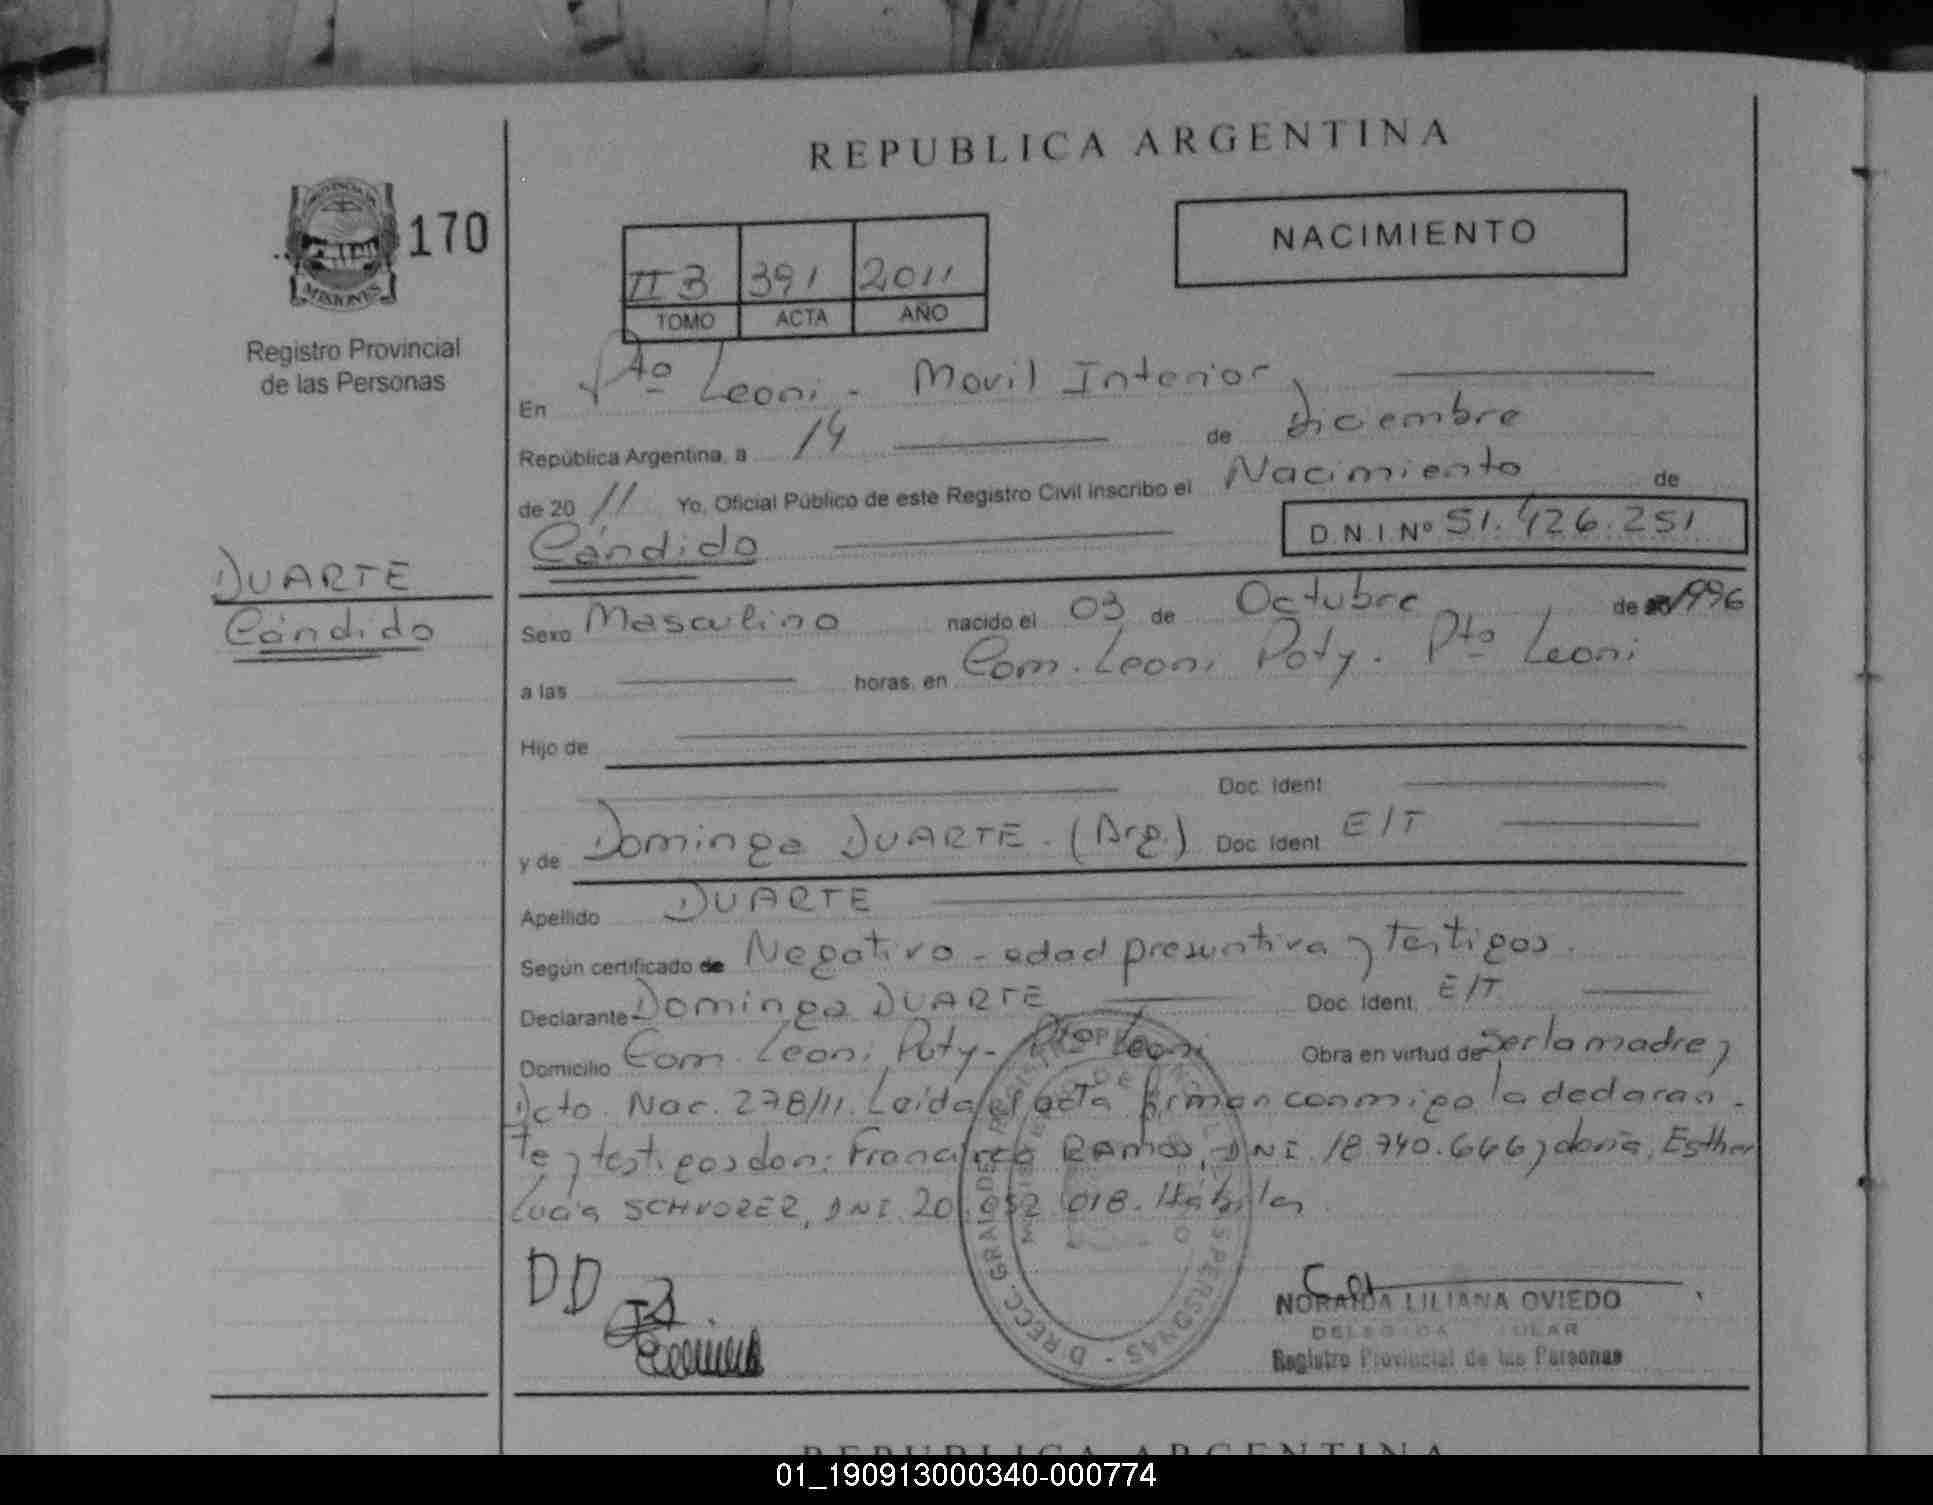 REPUBLICA ARGENTINA
PROVINCIA DE
MISIONES
170
Registro Provincial
de las Personas
NACIMIENTO
II 3 391 2011
TOMO ACTA AÑO
En Pto Leoni - Movil Interior
República Argentina, a 14 de Diciembre
de 20 11 Yo, Oficial Público de este Registro Civil inscribo el Nacimiento de
Cándido D.N.I.Nº 51.426.251
DUARTE
Cándido
Sexo Masculino nacido el 03 de Octubre de 1996
a las horas, en Com. Leoni Poty. Pto Leoni
Hijo de
Doc. Ident
y de Dominga DUARTE. (Arg.) Doc. Ident E/T
Apellido DUARTE
Según certificado de Negativo - edad presuntiva y testigos.
Declarante Dominga DUARTE Doc. Ident. E/T
Domicilio Com. Leoni Poty - Pto Leoni Obra en virtud de Ser la madre y
Dcto. Nac. 278/11. Leída el acta firman conmigo la declaran-
te y testigos don: Francisco RAMOS, DNI 18.740.646 y doña, Esther
Lucía SCHVORER, DNI 20.952.018. Hábiles
DD
NORAIDA LILIANA OVIEDO
DELEGADA TITULAR
Registro Provincial de las Personas
REPUBLICA ARGENTINA
01_190913000340-000774